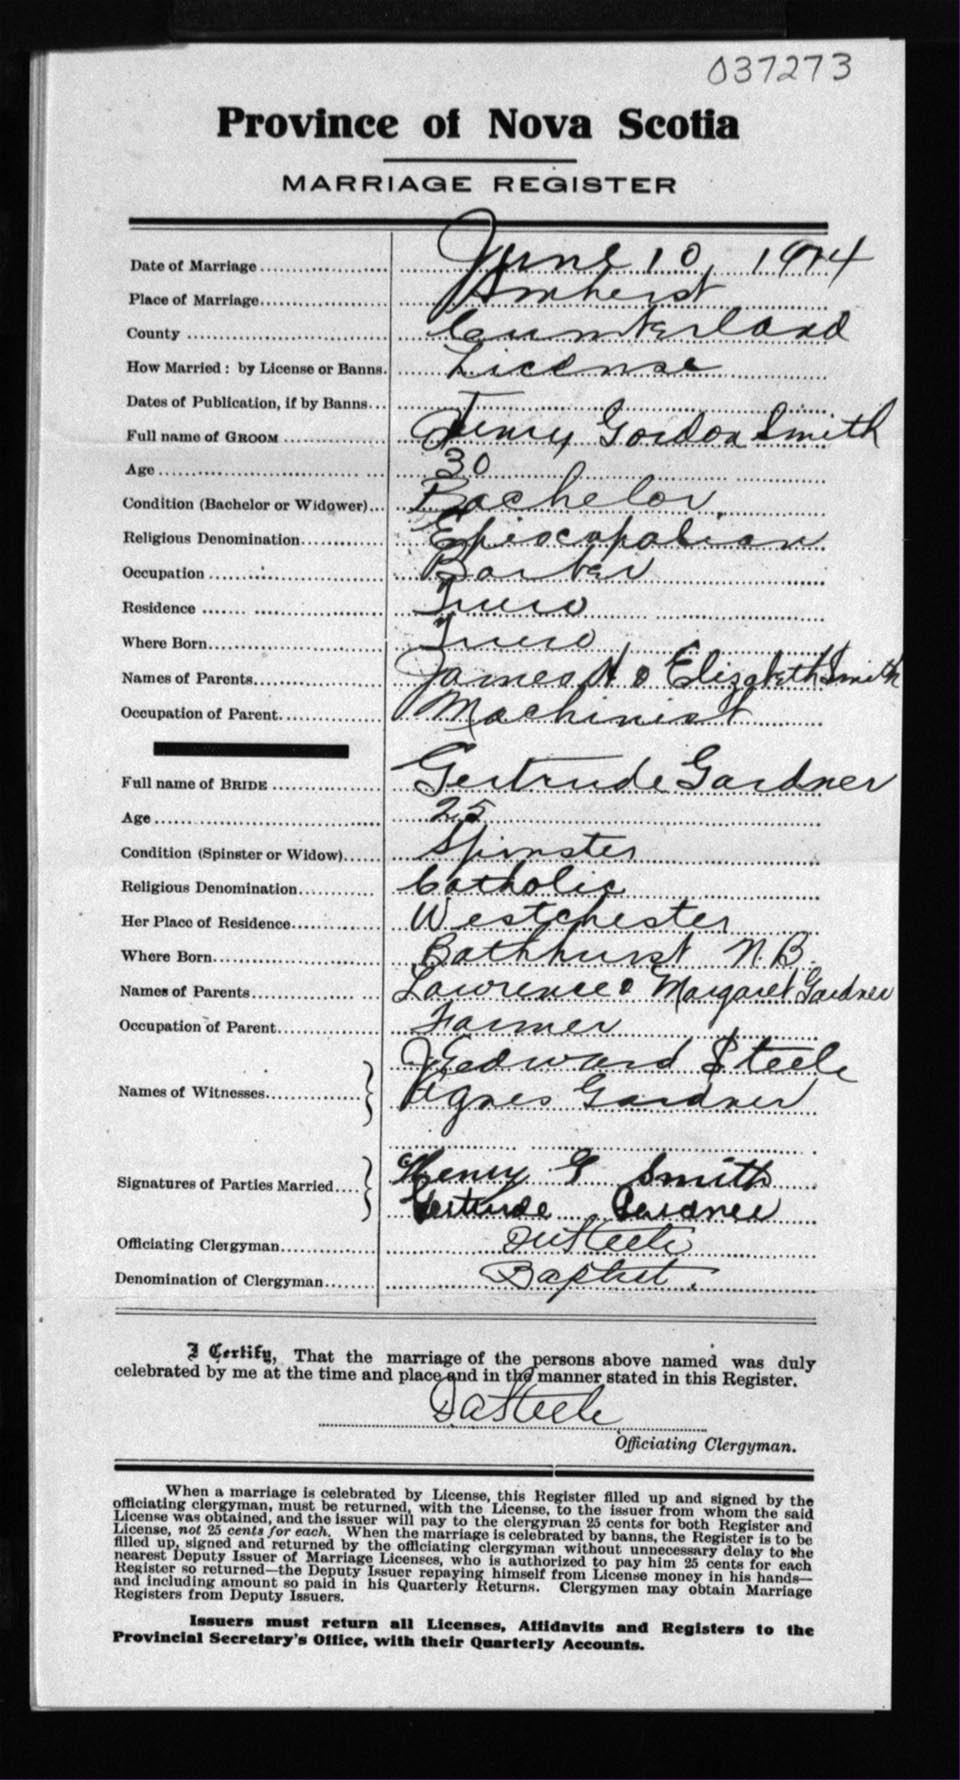 037273
Province of Nova Scotia
MARRIAGE REGISTER
Date of Marriage June 10, 1914
Place of Marriage Amherst
County Cumberland
How Married: by License or Banns. License
Dates of Publication, if by Banns
Full name of GROOM Henry Gordon Smith
Age 30
Condition (Bachelor or Widower) Bachelor
Religious Denomination Episcopalian
Occupation Barber
Residence Truro
Where Born Truro
Names of Parents James H & Elizabeth Smith
Occupation of Parent Machinist
Full name of BRIDE Gertrude Gardner
Age 25
Condition (Spinster or Widow) Spinster
Religious Denomination Catholic
Her Place of Residence Westchester
Where Born Bathhurst N.B.
Names of Parents Lawrence & Margaret Gardner
Occupation of Parent Farmer
J Edward Steele
Names of Witnesses Agnes Gardner
Henry G Smith
Signatures of Parties Married
Gertrude Gardner
Officiating Clergyman Steele
Denomination of Clergyman Baptist.
I Certify, That the marriage of the persons above named was duly
celebrated by me at the time and place and in the manner stated in this Register.
DaSteele
Officiating Clergyman.
When a marriage is celebrated by License, this Register filled up and signed by the
officiating clergyman, must be returned, with the License, to the issuer from whom the said
License was obtained, and the issuer will pay to the clergyman 25 cents for both Register and
License, not 25 cents for each. When the marriage is celebrated by banns, the Register is to be
filled up, signed and returned by the officiating clergyman without unnecessary delay to the
nearest Deputy Issuer of Marriage Licenses, who is authorized to pay him 25 cents for each
Register so returned—the Deputy Issuer repaying himself from License money in his hands—
and including amount so paid in his Quarterly Returns. Clergymen may obtain Marriage
Registers from Deputy Issuers.
Issuers must return all Licenses, Affidavits and Registers to the
Provincial Secretary's Office, with their Quarterly Accounts.